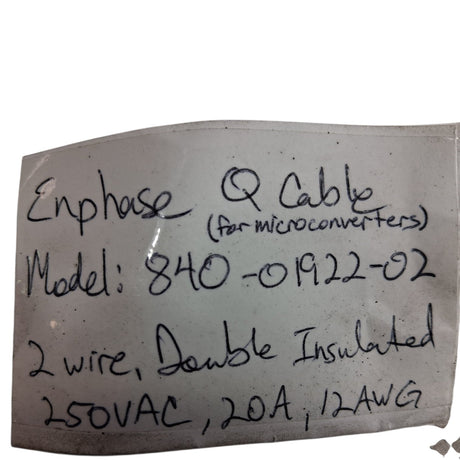 Enphase Q Cable
(for microconverters)
Model: 840-01922-02
2 wire, Double Insulated
250VAC, 20A, 12AWG